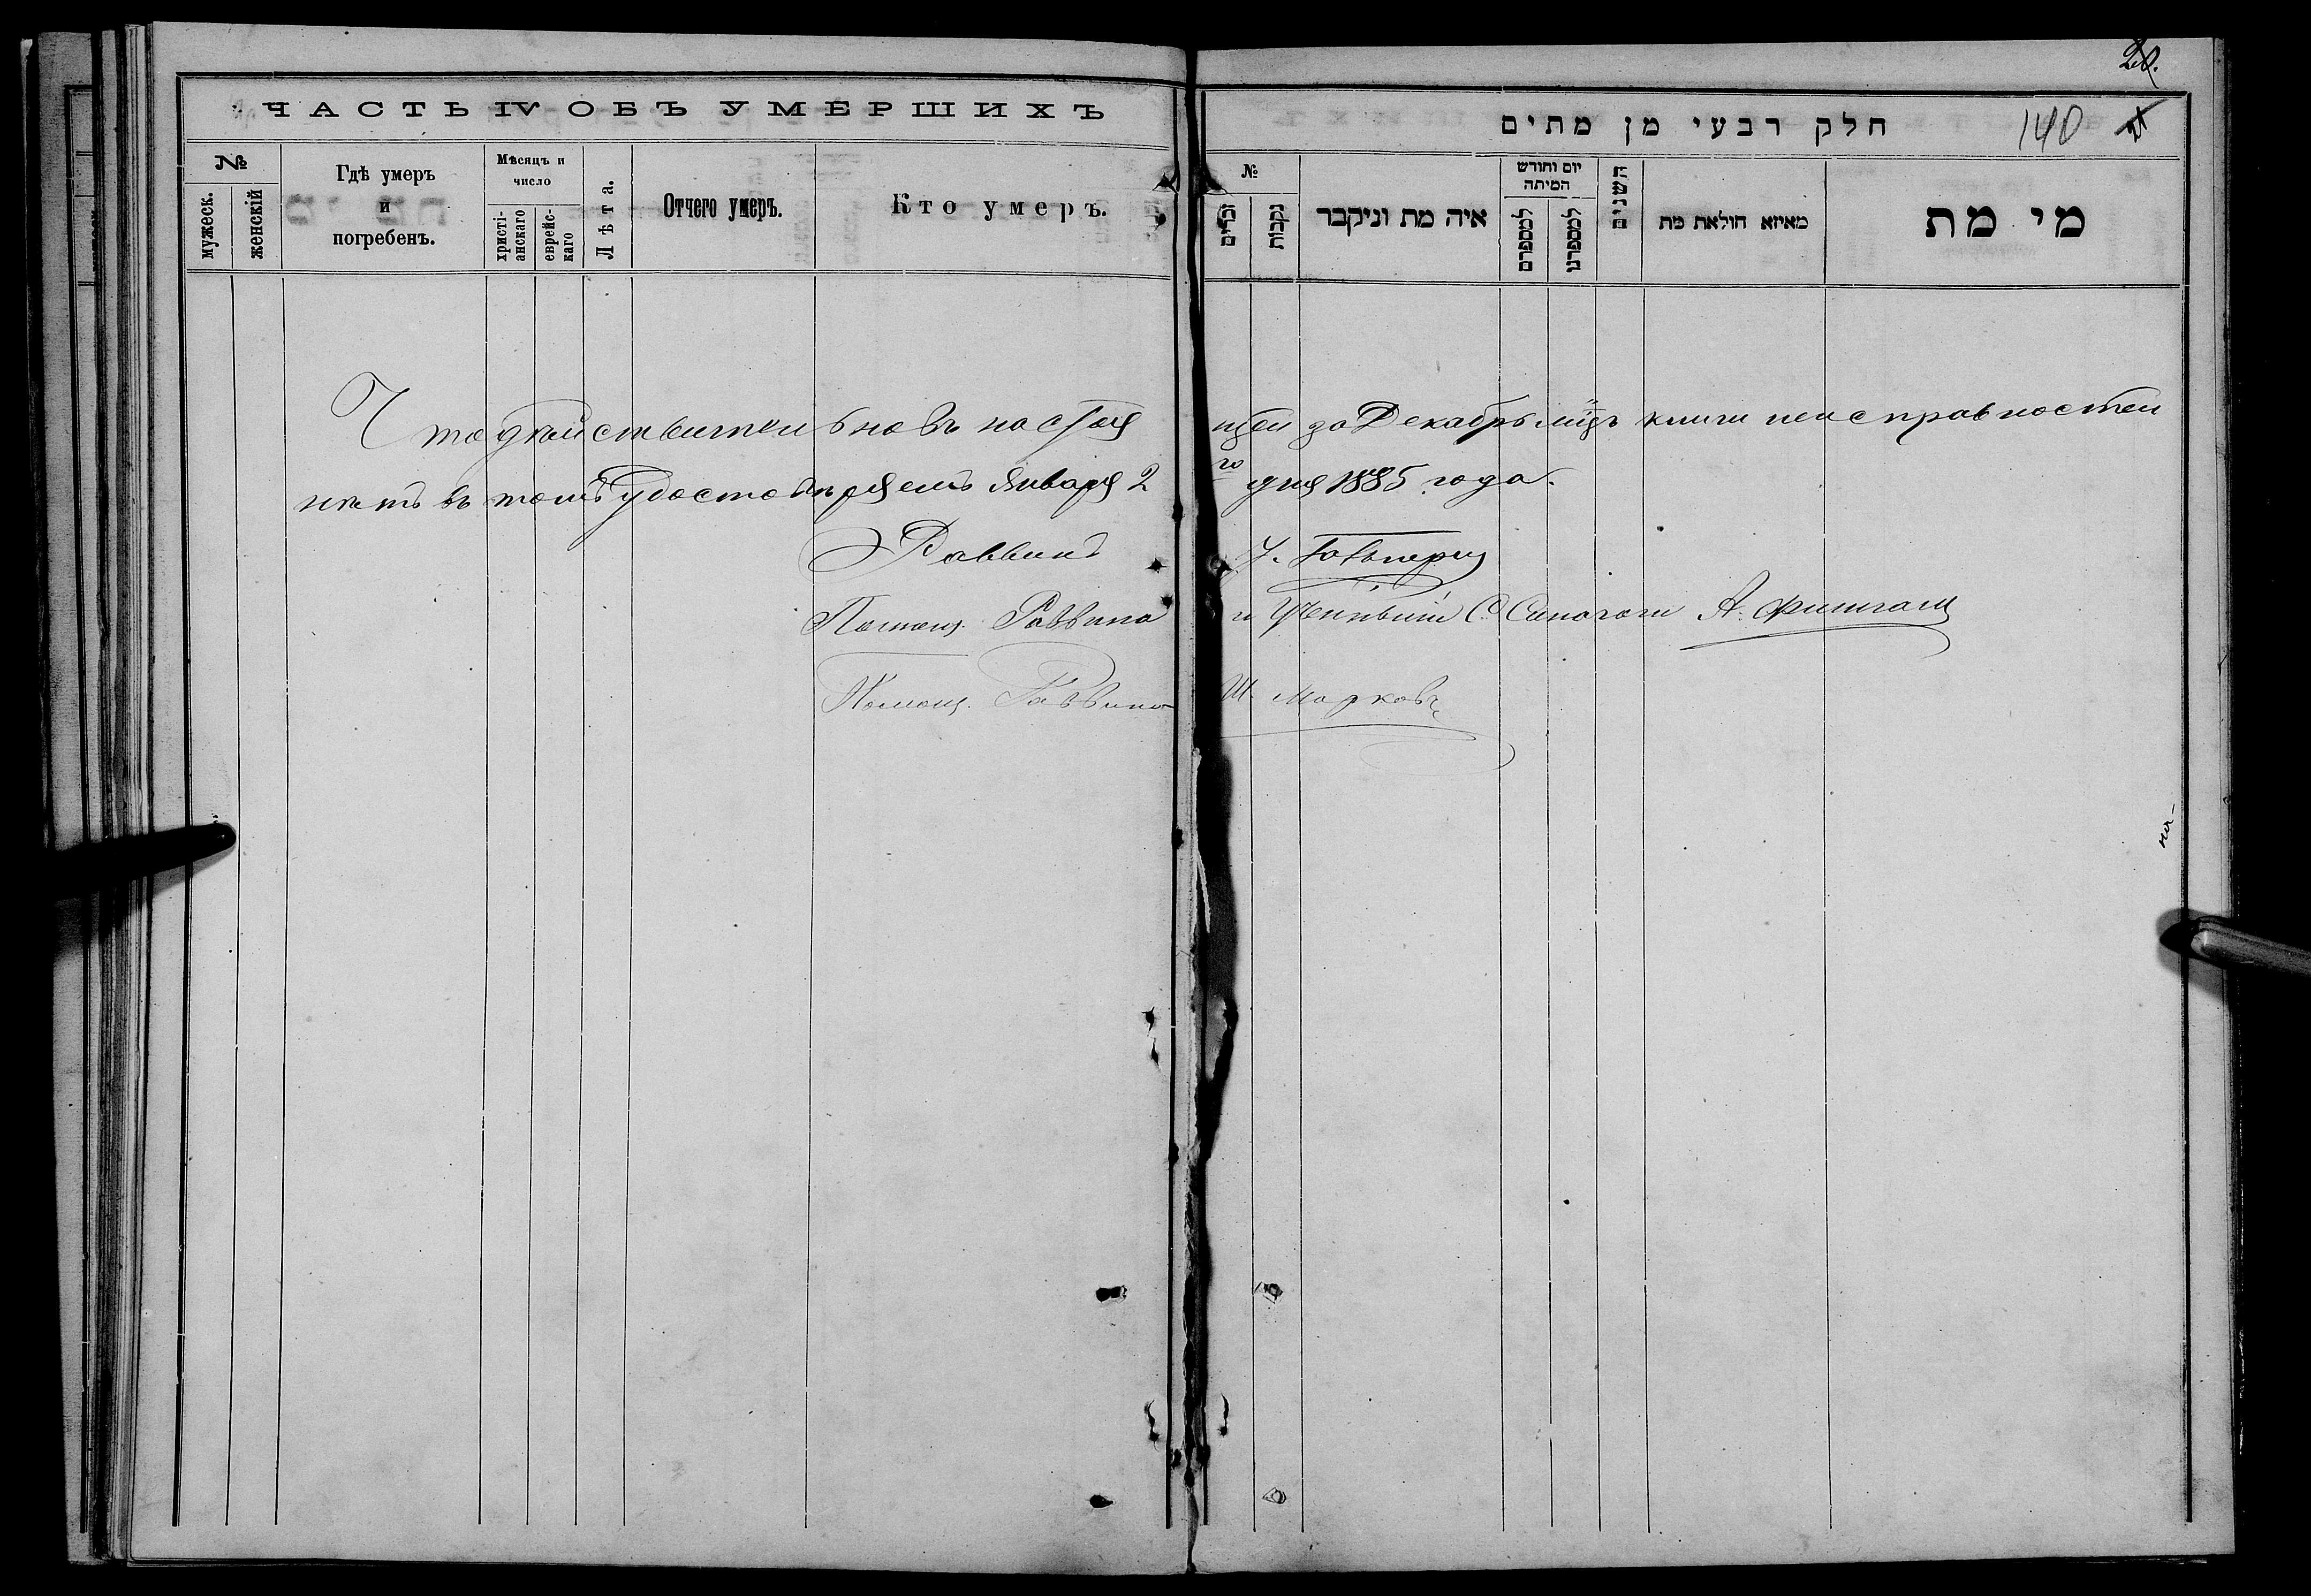 ЧАСТЬ IV ОБЪ УМЕРШИХЪ
№
мужеск.
женскій
Гдѣ умеръ
и
погребенъ.
Мѣсяцъ и
число
христі-
анскаго
еврейс-
каго
Лѣта.
Отчего умеръ.
Кто умеръ.
20.
חלק רבעי מן מתים
140
№
זכרים
נקבות
איה מת וניקבר
יום וחורש
המיתה
למספרם
למספרנו
השנים
מאיזא חולאת מת
מי מת
Что дѣйствительно въ настоя щей за Декабрь мцъ книги неисправностей
нѣтъ въ томъ удостовѣряемъ Января 2 го дня 1885 года.
Раввинъ
Помощ. Раввина и Ученный С. Синагоги А.
Помощ. Раввина Ш. Марковъ